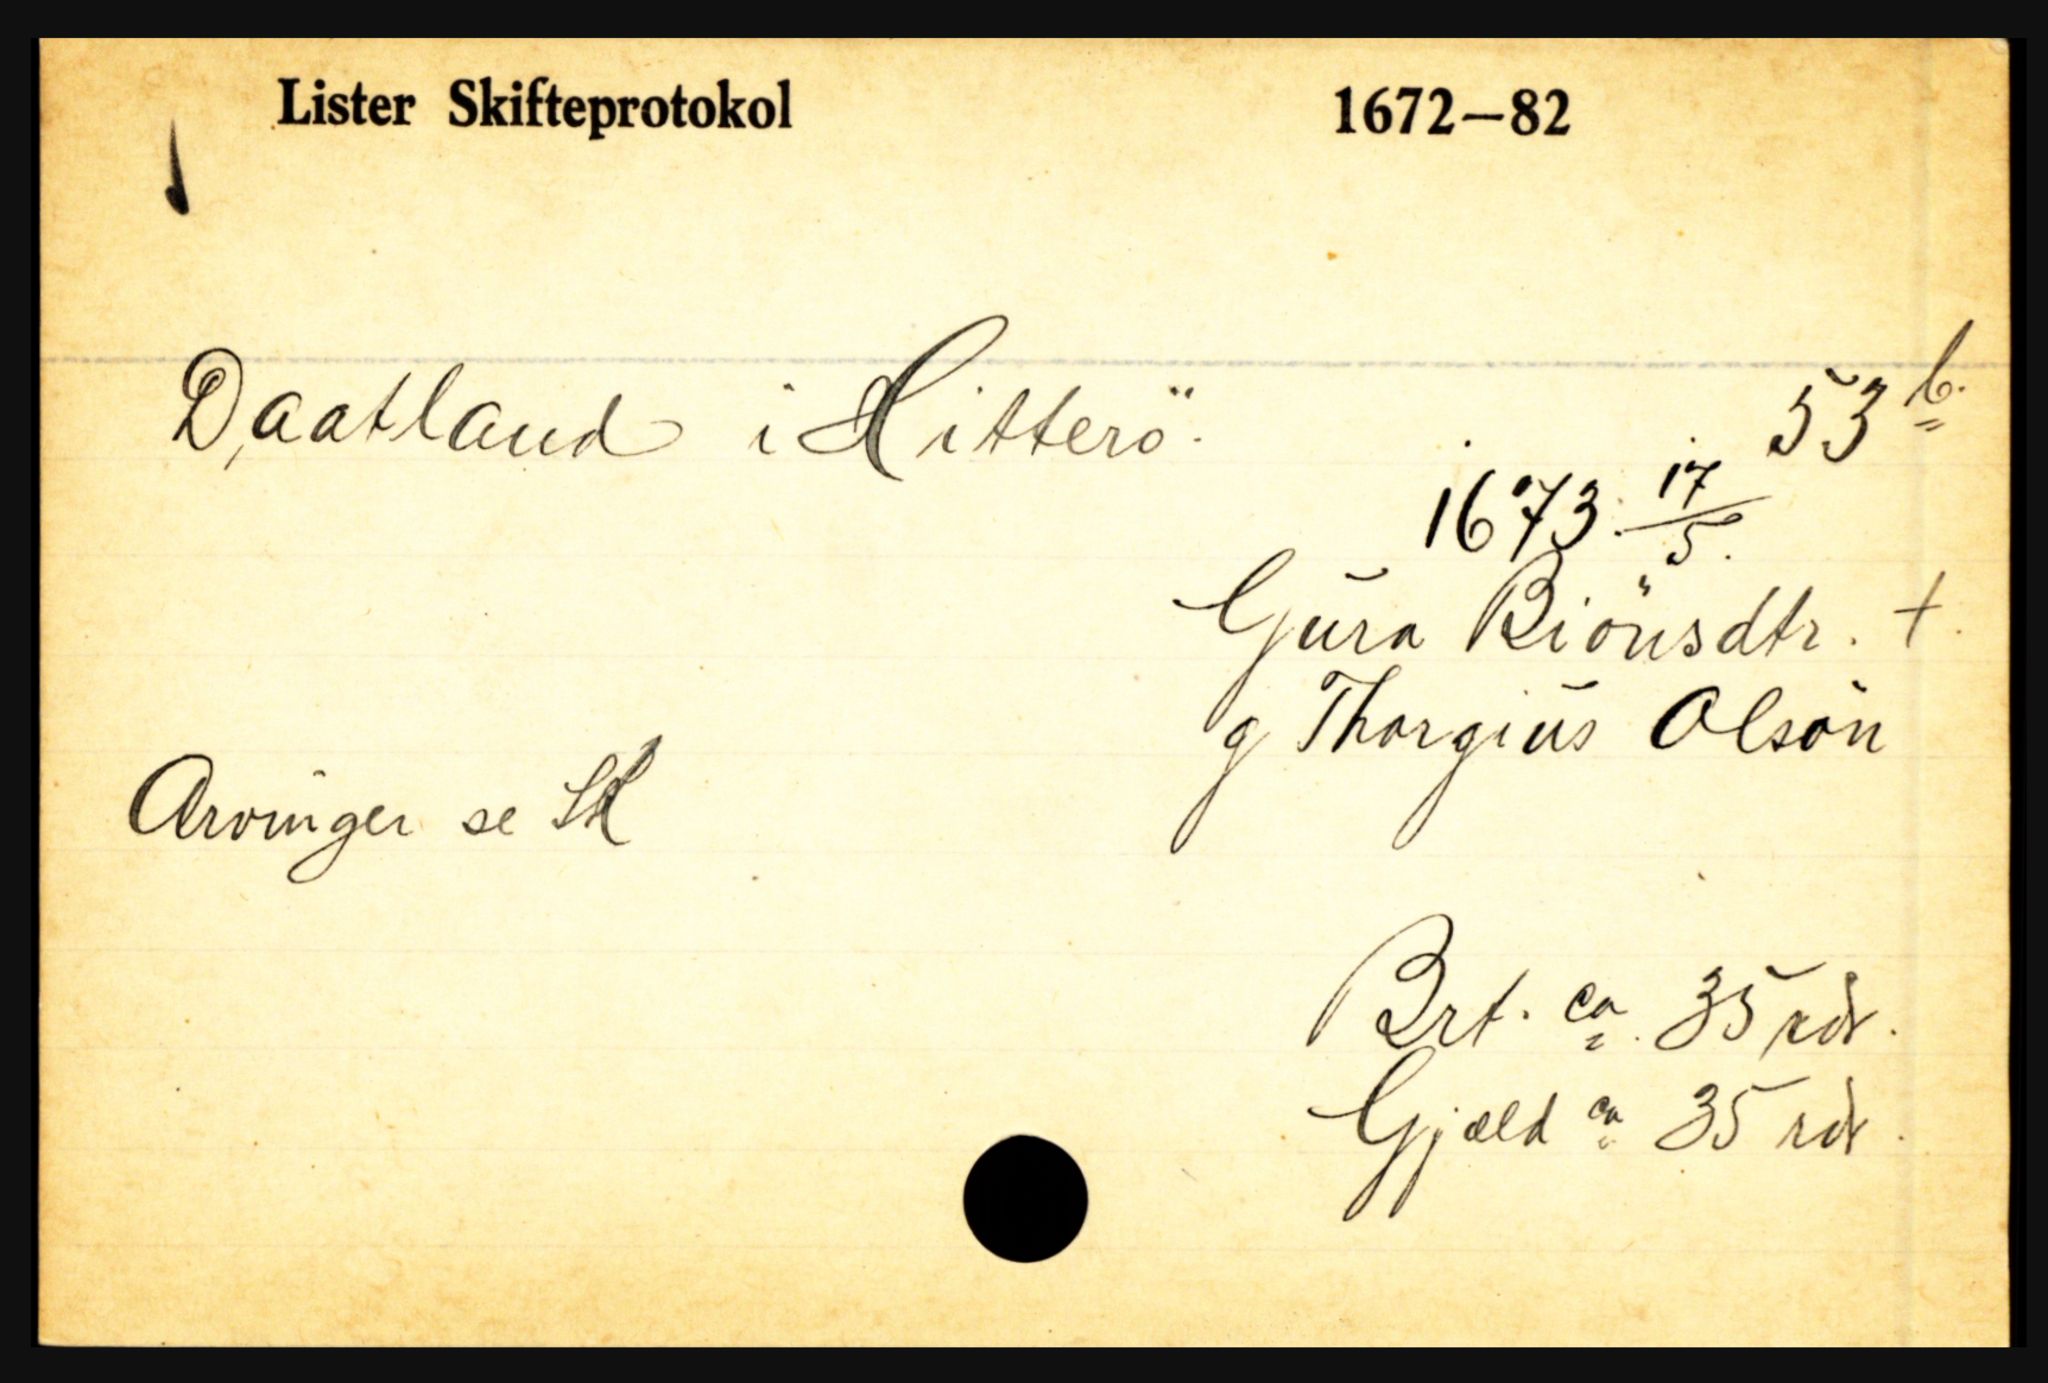 Lister Skifteprotokol 1672–82
Daatland i Hitterö. 53 b.
1673. 17/5.
Gura Biönsdtr. +
g Thorgius Olsön
Arvinger se SK
Brt. ca. 35 rdr.
Gjæld ca 35 rdr.